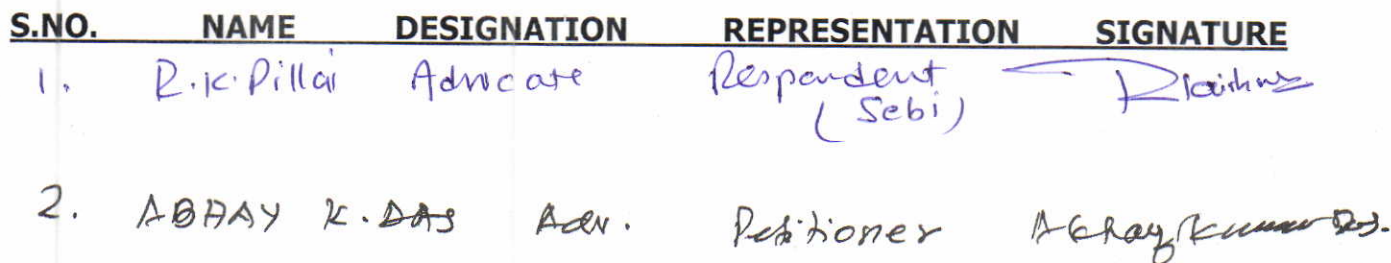 S.NO. NAME DESIGNATION REPRESENTATION SIGNATURE
1. R.K. Pillai Advocate Respondent
(Sebi)
2. ABHAY K. DAS Adv. Petitioner Abhay Kumar Das.